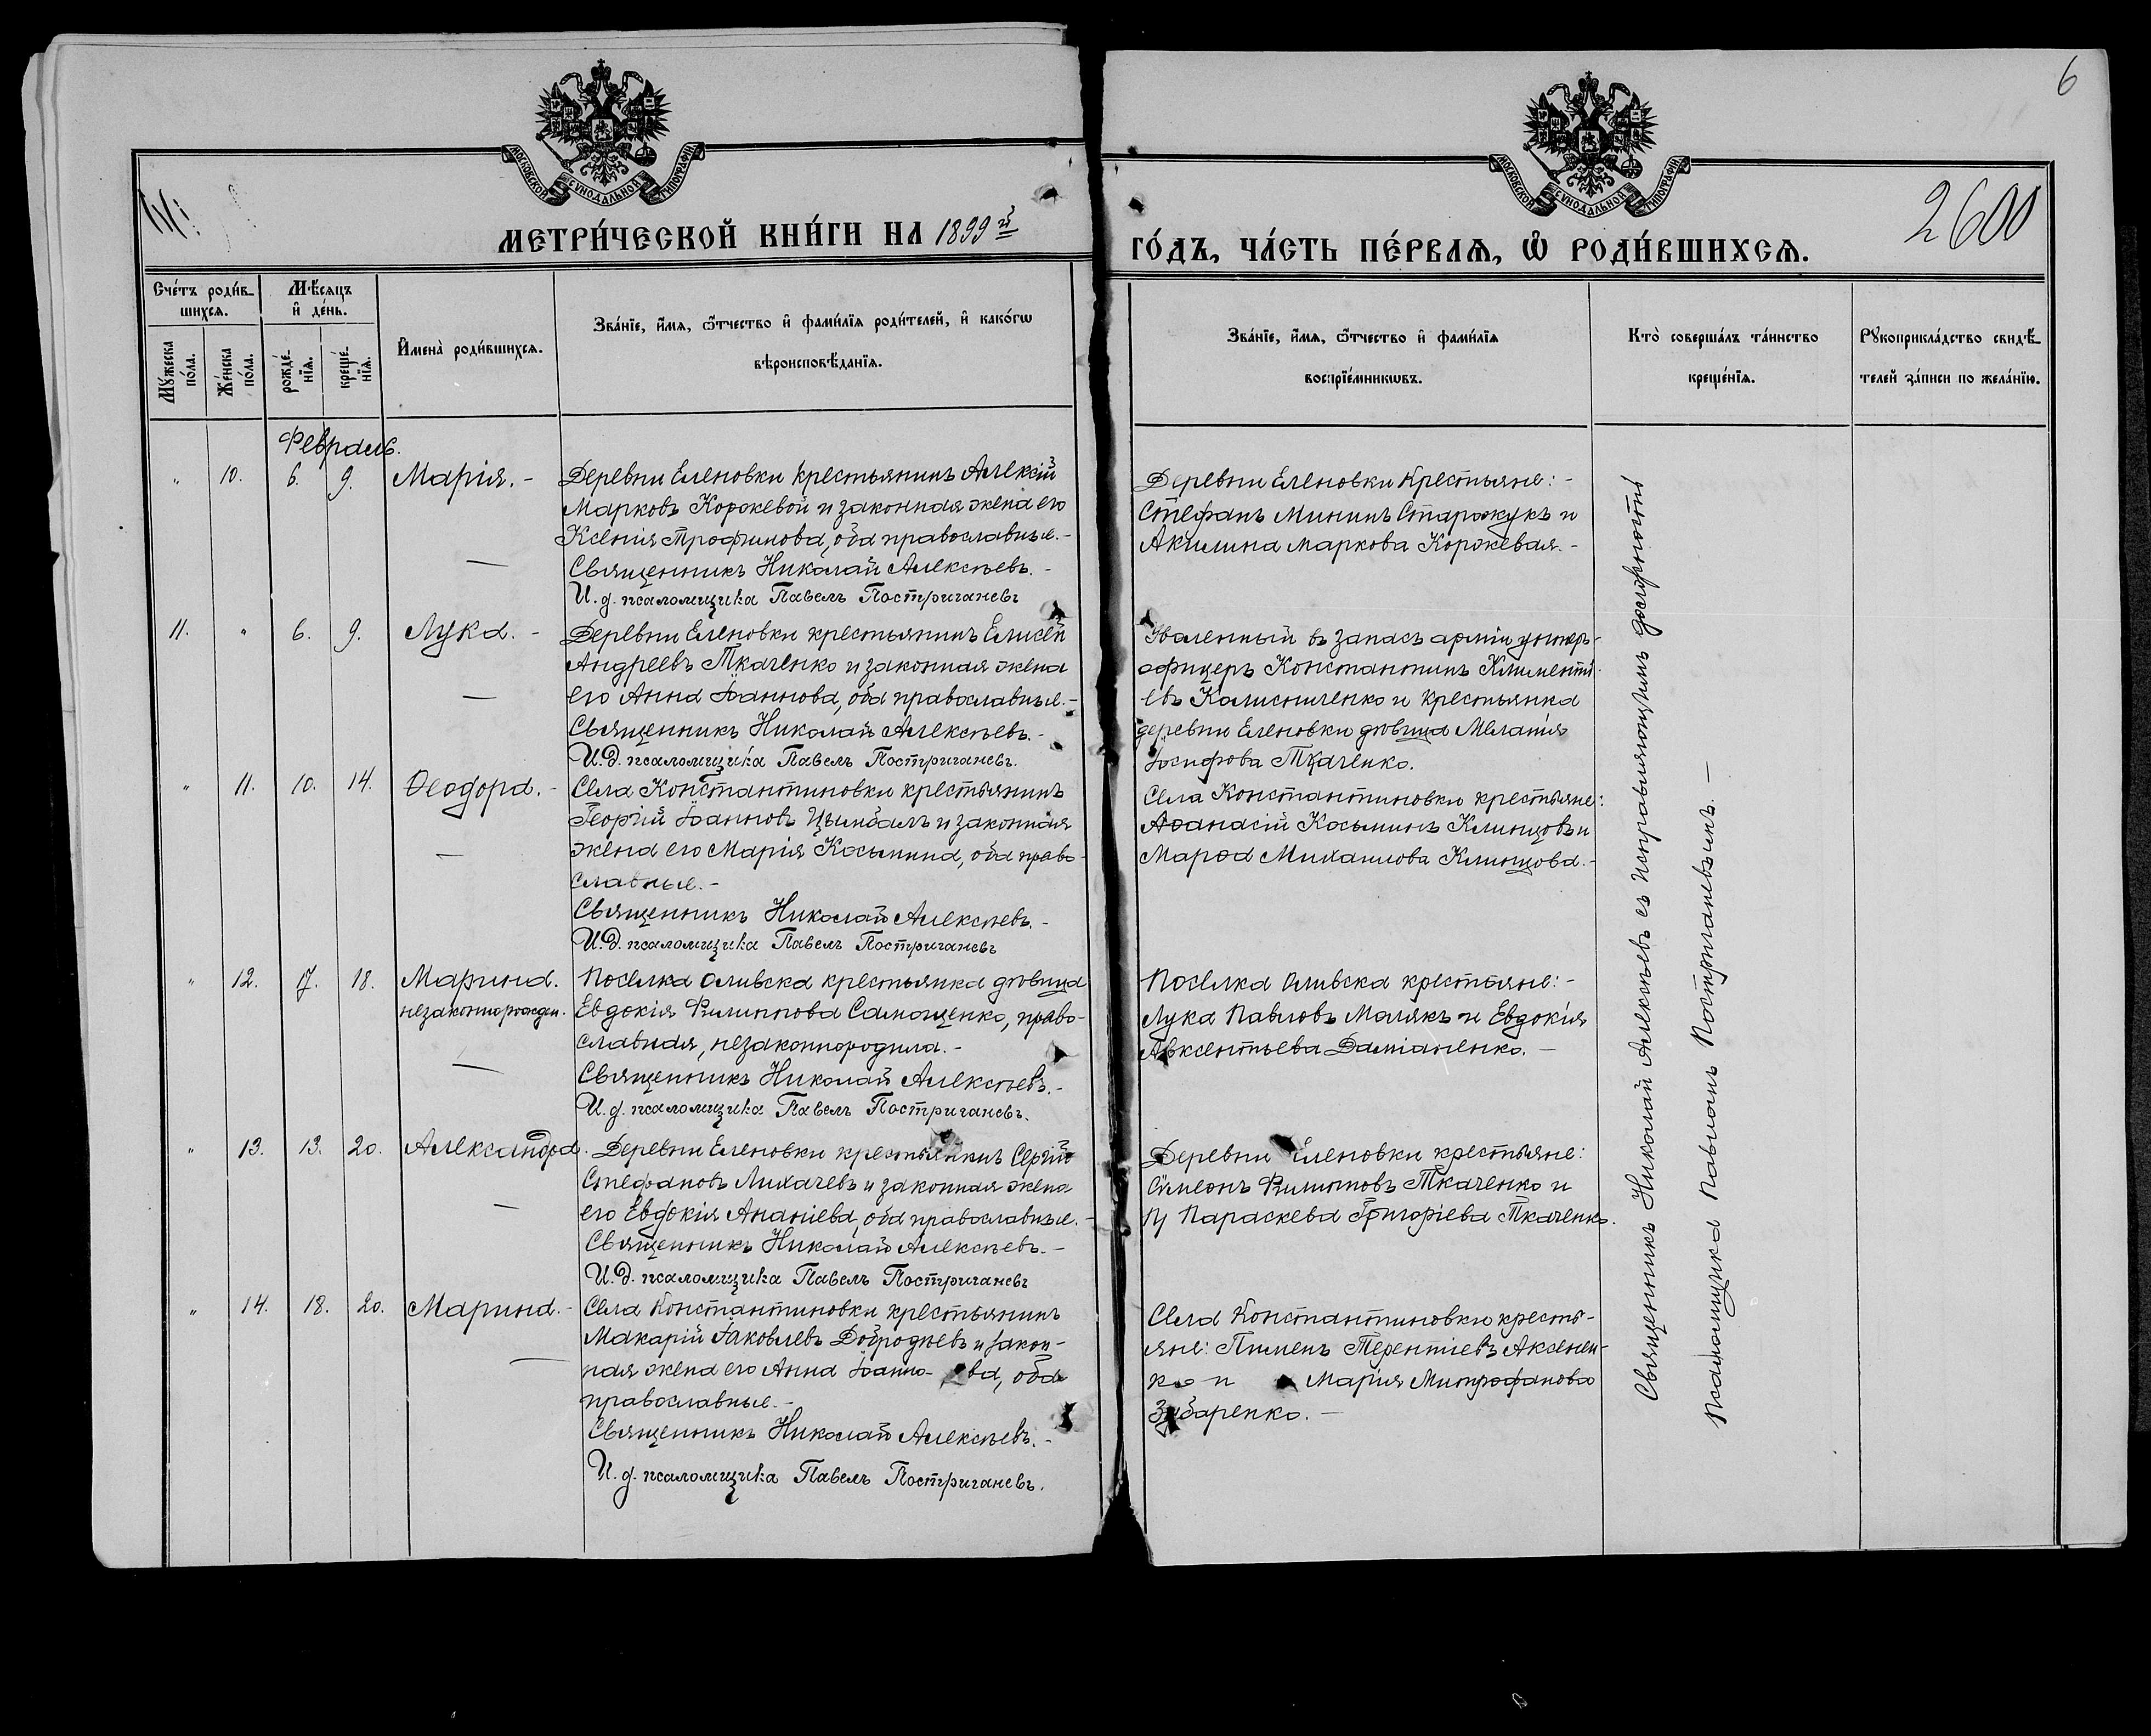 6
МОСКОВСКОЙ СѴНОДАЛЬНОЙ ТИПОГРАФІИ
МОСКОВСКОЙ СѴНОДАЛЬНОЙ ТИПОГРАФІИ
2600
МЕТРИ́ЧЕСКОЙ КНИ́ГИ НА 1899й
ГО́ДЪ, ЧА́СТЬ ПЕ́РВАѦ, Ѽ РОДИ́ВШИХСѦ.
Сче́тъ роди́в-
шихсѧ.
Мꙋжеска
по́ла.
Же́нска
по́ла.
Мѣ́сѧцъ
и҆ де́нь.
рожде́-
нїѧ.
креще́-
нїѧ.
И҆мена̀ роди́вшихсѧ.
Зва́нїе, и҆́мѧ, ѻ҆́тчество и҆ фами́лїѧ роди́телей, и҆ како́гѡ
вѣроисповѣ́данїѧ.
Зва́нїе, и҆́мѧ, ѻ҆́тчество и҆ фами́лїѧ
воспрїе́мникѡвъ.
Кто̀ соверша́лъ та́инство
креще́нїѧ.
Рꙋкоприкла́дство свидѣ́-
телей за́писи по жела́нїю.
Февраль.
" 10. 6. 9. Марія.-
Деревни Еленовки крестьянинъ Алексій
Марковъ Коржевой и законная жена его
Ксенія Трофимова, оба православные.-
Священникъ Николай Алексѣевъ.-
И. д. псаломщика Павелъ Постригачевъ
Деревни Еленовки крестьяне:-
Стефанъ Мининъ Старжукъ и
Акилина Маркова Коржевая.-
11. " 6. 9. Лука.-
Деревни Еленовки крестьянинъ Елисей
Андреевъ Ткаченко и законная жена
его Анна Іоаннова, оба православные.-
Священникъ Николай Алексѣевъ.-
И. д. псаломщика Павелъ Постригачевъ.
Уволенный въ запасъ арміи унтеръ-
офицеръ Константинъ Климентi-
евъ Калисниченко и крестьянка
деревни Еленовки дѣвица Меланія
Іосифова Ткаченко.
" 11. 10. 14. Ѳеодора.-
Села Константиновки крестьянинъ
Георгій Іоанновъ Цымбалъ и законная
жена его Марія Косьмина, оба право-
славные.-
Священникъ Николай Алексѣевъ.-
И. д. псаломщика Павелъ Постригачевъ
Села Константиновки крестьяне:
Аѳанасій Косьминъ Клинцовъ и
Марѳа Михаилова Клинцова.-
" 12. 17. 18. Марина.
незаконнорожден.
Поселка Оливска крестьянка дѣвица
Евдокія Филиппова Самощенко, право-
славная, незаконнородила.-
Священникъ Николай Алексѣевъ.-
И. д. псаломщика Павелъ Постригачевъ.
Поселка Оливска крестьяне:-
Лука Павловъ Малякъ и Евдокія
Авксентьева Даміаненко.-
" 13. 13. 20. Александра.
Деревни Еленовки крестьянинъ Сергій
Стефановъ Лихачевъ и законная жена
его Евдокія Ананіева, оба православные.-
Священникъ Николай Алексѣевъ.-
И. д. псаломщика Павелъ Постригачевъ
Деревни Еленовки крестьяне:
Сѵмеонъ Филипповъ Ткаченко и
Параскева Григоріева Ткаченко.
" 14. 18. 20. Марина.-
Села Константиновки крестьянинъ
Макарій Іаковлевъ Добродѣевъ и закон-
ная жена его Анна Іоанно- ва, оба
православные.-
Священникъ Николай Алексѣевъ.-
И. д. псаломщика Павелъ Постригачевъ.
Села Константиновки кресть-
яне: Пименъ Терентіевъ Аксенен-
ко и Марія Митрофанова
Зубаренко.-
Священникъ Николай Алексѣевъ съ исправляющимъ должность
псаломщика Павломъ Постригачевымъ.-